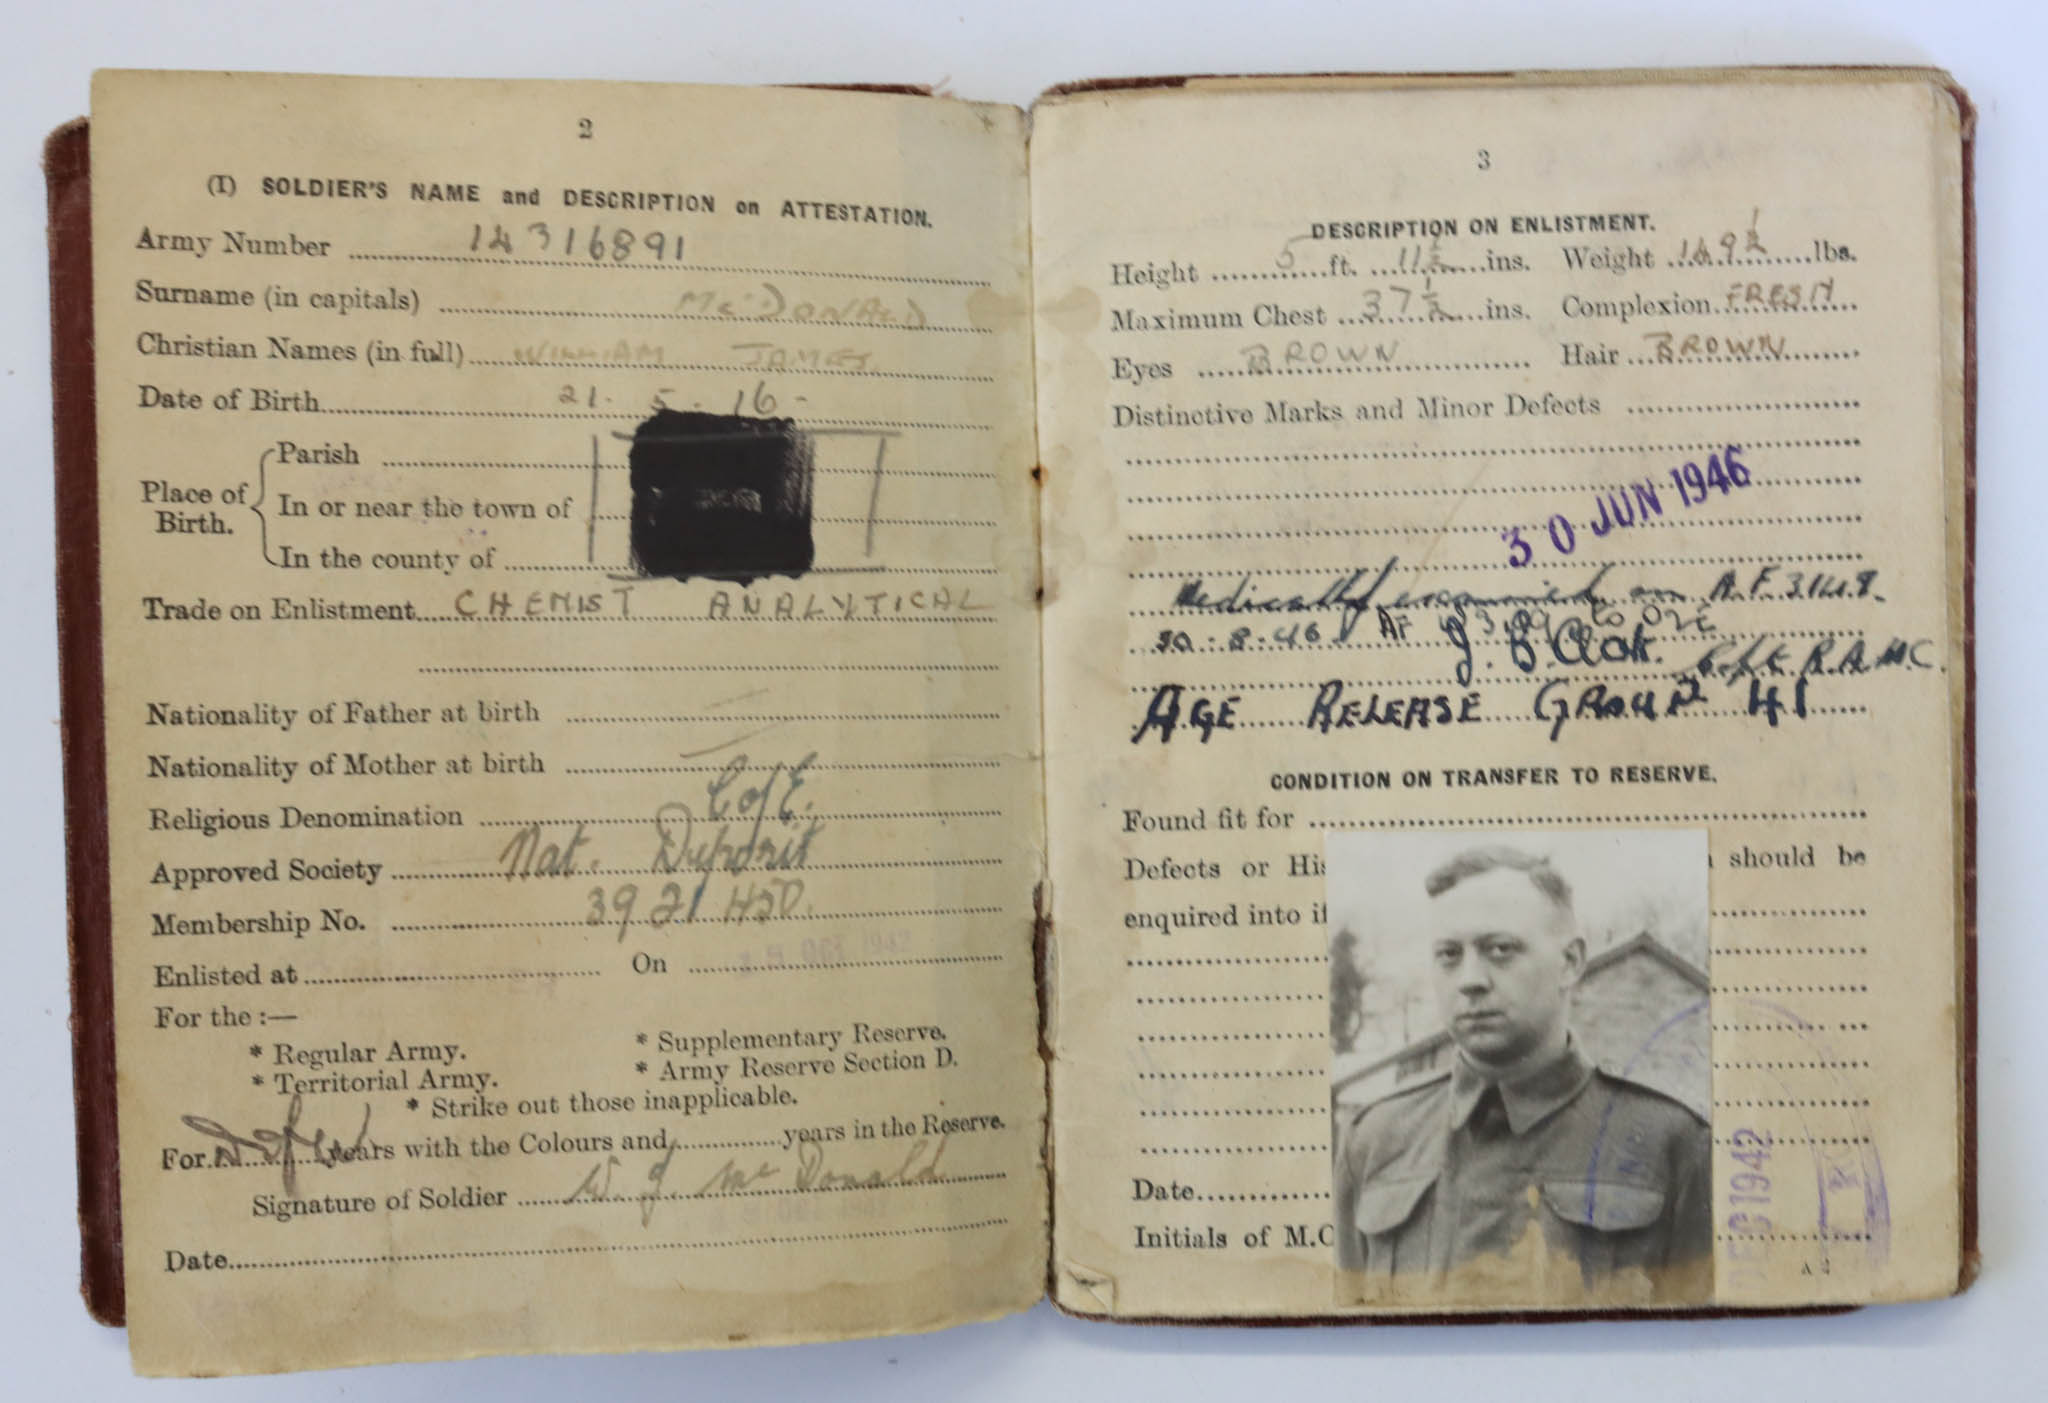 2
(I) SOLDIER'S NAME and DESCRIPTION on ATTESTATION.
Army Number 14316891
Surname (in capitals) McDONALD
Christian Names (in full) WILLIAM JAMES
Date of Birth 21. 5. 16-
Place of Birth.
Parish
In or near the town of
In the county of
Trade on Enlistment CHEMIST ANALYTICAL
Nationality of Father at birth
Nationality of Mother at birth
Religious Denomination C of E.
Approved Society Nat. Deposit
Membership No. 3921450.
Enlisted at On OCT 1942
For the :—
* Regular Army. * Supplementary Reserve.
* Territorial Army. * Army Reserve Section D.
* Strike out those inapplicable.
For years with the Colours and years in the Reserve.
Signature of Soldier W. J. McDonald
Date
3
DESCRIPTION ON ENLISTMENT.
Height 5 ft. 11½ ins. Weight 149½ lbs.
Maximum Chest 37½ ins. Complexion FRESH
Eyes BROWN Hair BROWN
Distinctive Marks and Minor Defects
30 JUN 1946
Medically examined on A.F. 3148.
AF
J. B. Clark. R.A.M.C.
AGE RELEASE GROUP 41
CONDITION ON TRANSFER TO RESERVE.
Found fit for
Defects or His should be
enquired into if
Date
Initials of M.O
DEC 1942
A 2